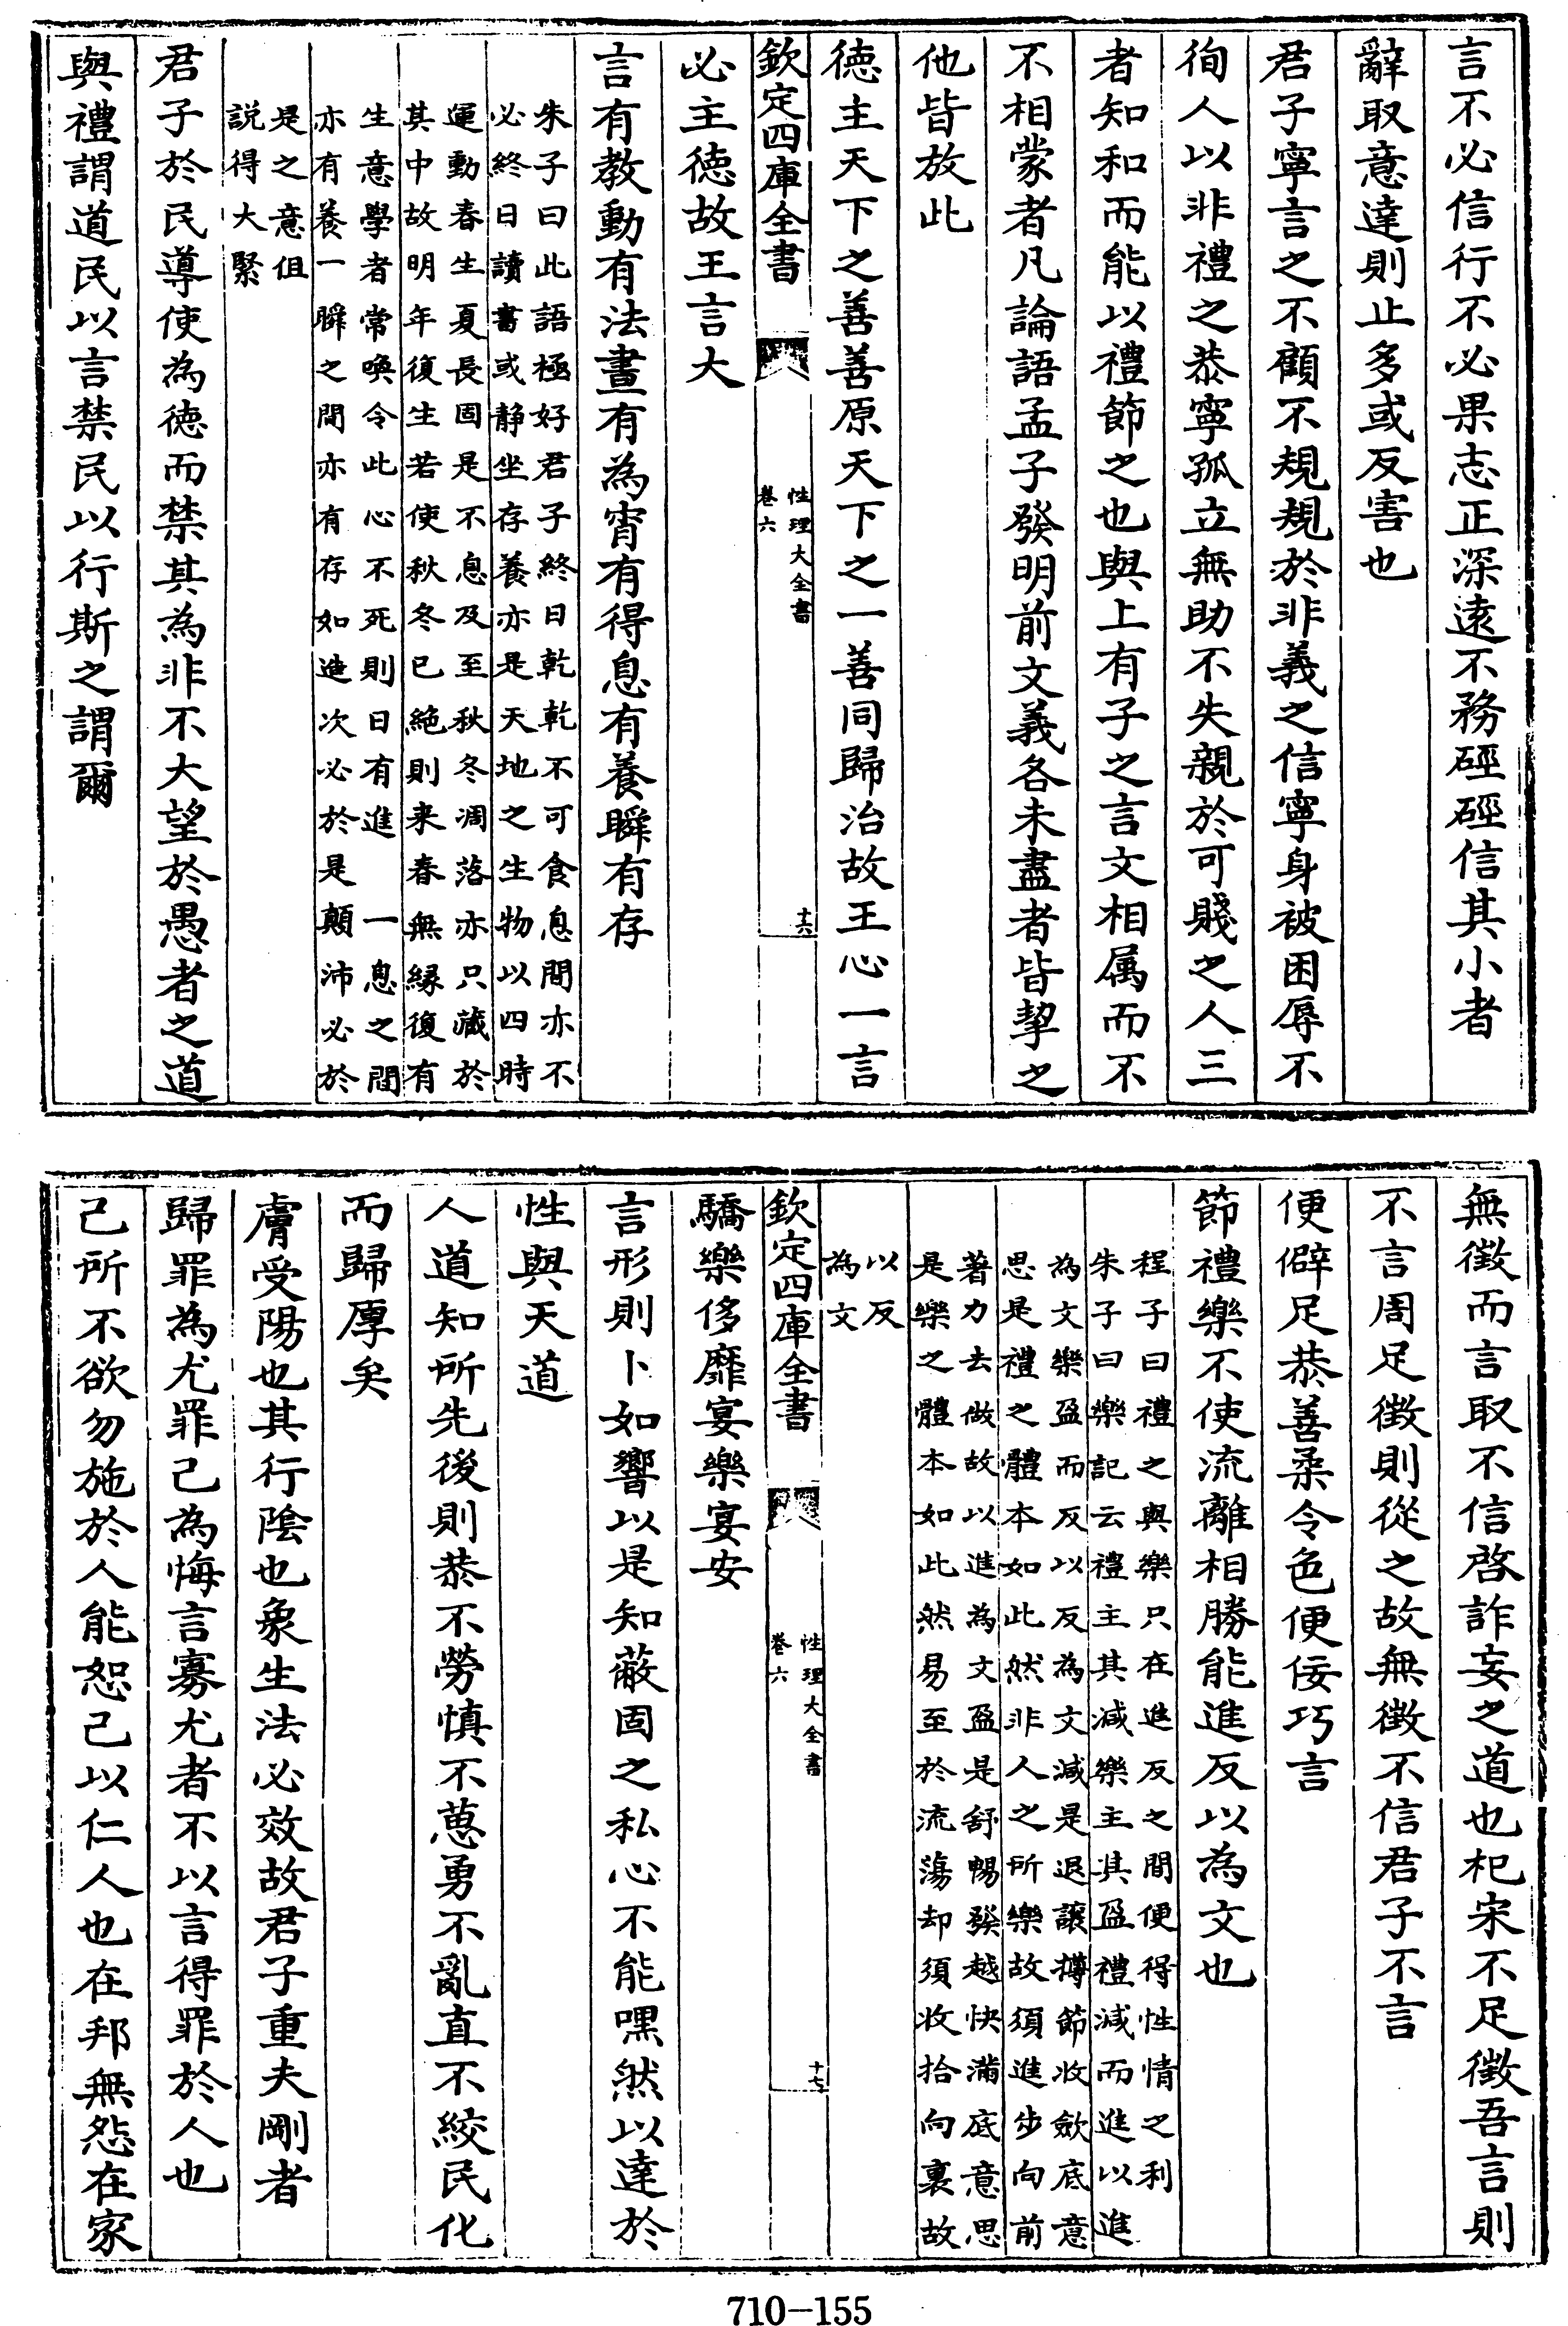 言不必信行不必果志正深遠不務硜硜信其小者
辭取意達則止多或反害也
君子寧言之不顧不規規於非義之信寧身被困辱不
徇人以非禮之恭寧孤立無助不失親於可賤之人三
者知和而能以禮節之也與上有子之言文相属而不
不相蒙者凡論語孟子發明前文義各未盡者皆挈之
他皆放此
德主天下之善善原天下之一善同歸治故王心一言
欽定四庫全書
性理大全書
卷六
十六
必主德故王言大
言有教動有法晝有為宵有得息有養瞬有存
朱子曰此語極好君子終日乾乾不可食息間亦不
必終日讀書或静坐存養亦是天地之生物以四時
運動春生夏長固是不息及至秋冬凋落亦只藏於
其中故明年復生若使秋冬已絶則来春無縁復有
生意學者常喚令此心不死則日有進 一息之間
亦有養一瞬之間亦有存如造次必於是顛沛必於
是之意但
説得大緊
君子於民導使為德而禁其為非不大望於愚者之道
與禮謂道民以言禁民以行斯之謂爾
無徴而言取不信啓詐妄之道也杞宋不足徴吾言則
不言周足徴則從之故無徴不信君子不言
便僻足恭善柔令色便佞巧言
節禮樂不使流離相勝能進反以為文也
程子曰禮之與樂只在進反之間便得性情之利
朱子曰樂記云禮主其減樂主其盈禮減而進以進
為文樂盈而反以反為文減是退讓撙節收斂底意
思是禮之體本如此然非人之所樂故須進步向前
著力去做故以進為文盈是舒暢發越快滿底意思
是樂之體本如此然易至於流蕩却須收拾向裏故
以反
為文
欽定四庫全書
性理大全書
卷六
十七
驕樂侈靡宴樂宴安
言形則卜如響以是知蔽固之私心不能嘿然以達於
性與天道
人道知所先後則恭不勞慎不葸勇不亂直不絞民化
而歸厚矣
膚受陽也其行陰也象生法必效故君子重夫剛者
歸罪為尤罪己為悔言寡尤者不以言得罪於人也
己所不欲勿施於人能恕己以仁人也在邦無怨在家
710-155